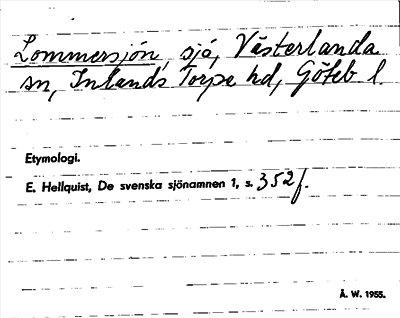 Lommersjön, sjö, Västerlanda
sn, Inlands Torpe hd, Göteb l.
Etymologi.
E. Hellquist, De svenska sjönamnen 1, s. 352 f.
Å. W. 1955.